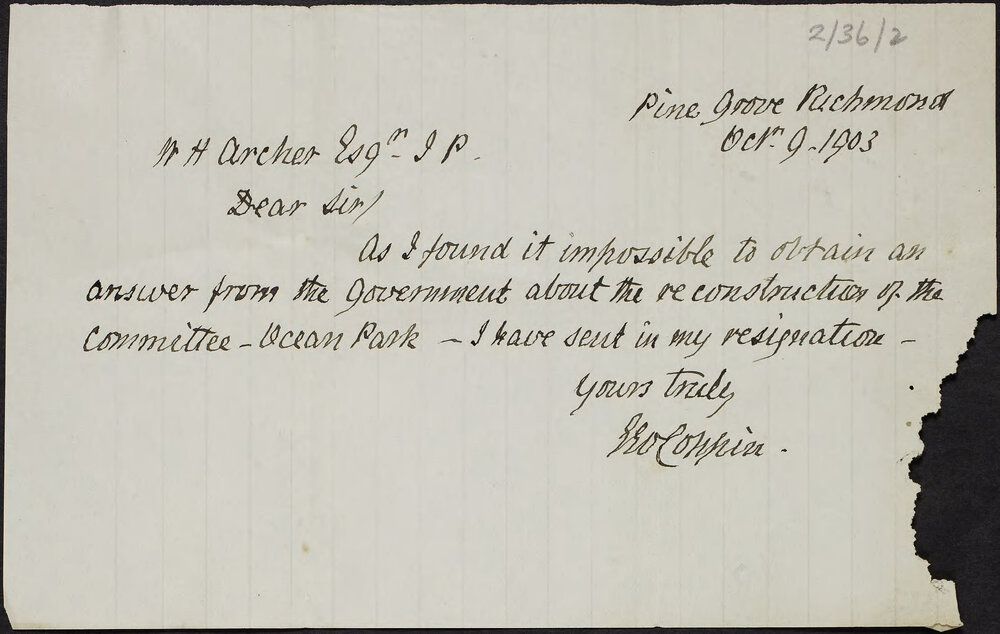 2/36/2
Pine Grove Richmond
Octr. 9. 1903
W H Archer Esqr. J P.
Dear Sir/
As I found it impossible to obtain an
answer from the Government about the reconstruction of the
Committee - Ocean Park - I have sent in my resignation -
Yours truly
Geo Coppin.